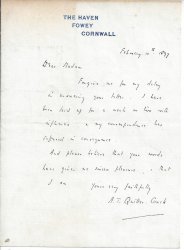 THE HAVEN
FOWEY
CORNWALL
February 10th 1897
Dear Madam
Forgive me for my delay
in answering your letter. I have
been laid up for a week or two with
influenza & my correspondence has
suffered in consequence.
And please believe that your words
have given me sincere pleasure & that
I am
Yours very faithfully
A. T. Quiller-Couch